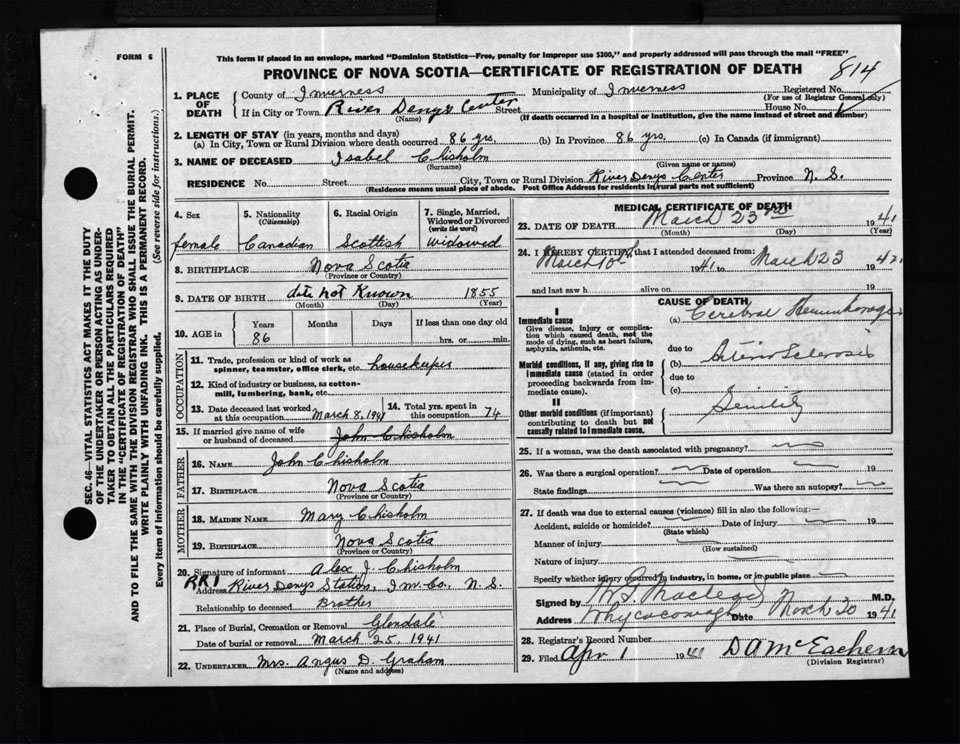 FORM 6
This form if placed in an envelope, marked "Dominion Statistics—Free, penalty for improper use $300," and properly addressed will pass through the mail "FREE"
PROVINCE OF NOVA SCOTIA—CERTIFICATE OF REGISTRATION OF DEATH
814
1. PLACE OF DEATH
County of Inverness Municipality of Inverness Registered No.
(For use of Registrar General only)
If in City or Town River Denys Center Street House No.
(Name) (If death occurred in a hospital or institution, give the name instead of street and number)
2. LENGTH OF STAY (in years, months and days)
(a) In City, Town or Rural Division where death occurred 86 yrs. (b) In Province 86 yrs. (c) In Canada (if immigrant)
3. NAME OF DECEASED Isabel Chisholm
(Surname) (Given name or names)
RESIDENCE No. Street City, Town or Rural Division River Denys Center Province N. S.
(Residence means usual place of abode. Post Office Address for residents in rural parts not sufficient)
4. Sex
female
5. Nationality
(Citizenship)
Canadian
6. Racial Origin
Scottish
7. Single, Married, Widowed or Divorced
(write the word)
Widowed
8. BIRTHPLACE Nova Scotia
(Province or Country)
9. DATE OF BIRTH date not Known 1855
(Month) (Day) (Year)
10. AGE in
Years Months Days If less than one day old
86 hrs. or min.
OCCUPATION
11. Trade, profession or kind of work as
spinner, teamster, office clerk, etc. housekeeper
12. Kind of industry or business, as cotton-
mill, lumbering, bank, etc.
13. Date deceased last worked
at this occupation March 8, 1941
14. Total yrs. spent in
this occupation 74
15. If married give name of wife
or husband of deceased John Chisholm
FATHER
16. NAME John Chisholm
17. BIRTHPLACE Nova Scotia
(Province or Country)
MOTHER
18. MAIDEN NAME Mary Chisholm
19. BIRTHPLACE Nova Scotia
(Province or Country)
20. Signature of informant Alex J. Chisholm
RR1
Address River Denys Station, Inv. Co., N. S.
Relationship to deceased Brother
21. Place of Burial, Cremation or Removal Glendale
Date of burial or removal March 25, 1941
22. UNDERTAKER Mrs. Angus D. Graham
(Name and address)
MEDICAL CERTIFICATE OF DEATH
23. DATE OF DEATH March 23rd 1941
(Month) (Day) (Year)
24. I HEREBY CERTIFY, that I attended deceased from:
March 10th 1941 to March 23 194
and last saw h alive on 19
CAUSE OF DEATH
I
Immediate cause
Give disease, injury or complica-
tion which caused death, not the
mode of dying, such as heart failure,
asphyxia, asthenia, etc.
(a) Cerebral Hemmhorage
due to
Morbid conditions, if any, giving rise to
immediate cause (stated in order
proceeding backwards from im-
mediate cause).
(b) Arterio Sclerosis
due to
(c)
II
Other morbid conditions (if important)
contributing to death but not
causally related to immediate cause.
Senility
25. If a woman, was the death associated with pregnancy?
26. Was there a surgical operation? Date of operation 19
State findings Was there an autopsy?
27. If death was due to external causes (violence) fill in also the following:—
Accident, suicide or homicide? Date of injury 19
(State which)
Manner of injury
(How sustained)
Nature of injury
Specify whether injury occurred in industry, in home, or in public place
Signed by Macleod M.D.
Address Whycocomagh Date March 30 1941
28. Registrar's Record Number
29. Filed Apr 1 19 41 D A McEachern
(Division Registrar)
SEC. 46—VITAL STATISTICS ACT MAKES IT THE DUTY
OF THE UNDERTAKER OR PERSON ACTING AS UNDER-
TAKER TO OBTAIN ALL THE PARTICULARS REQUIRED
IN THE "CERTIFICATE OF REGISTRATION OF DEATH"
AND TO FILE THE SAME WITH THE DIVISION REGISTRAR WHO SHALL ISSUE THE BURIAL PERMIT.
WRITE PLAINLY WITH UNFADING INK. THIS IS A PERMANENT RECORD.
Every item of information should be carefully supplied. (See reverse side for instructions.)